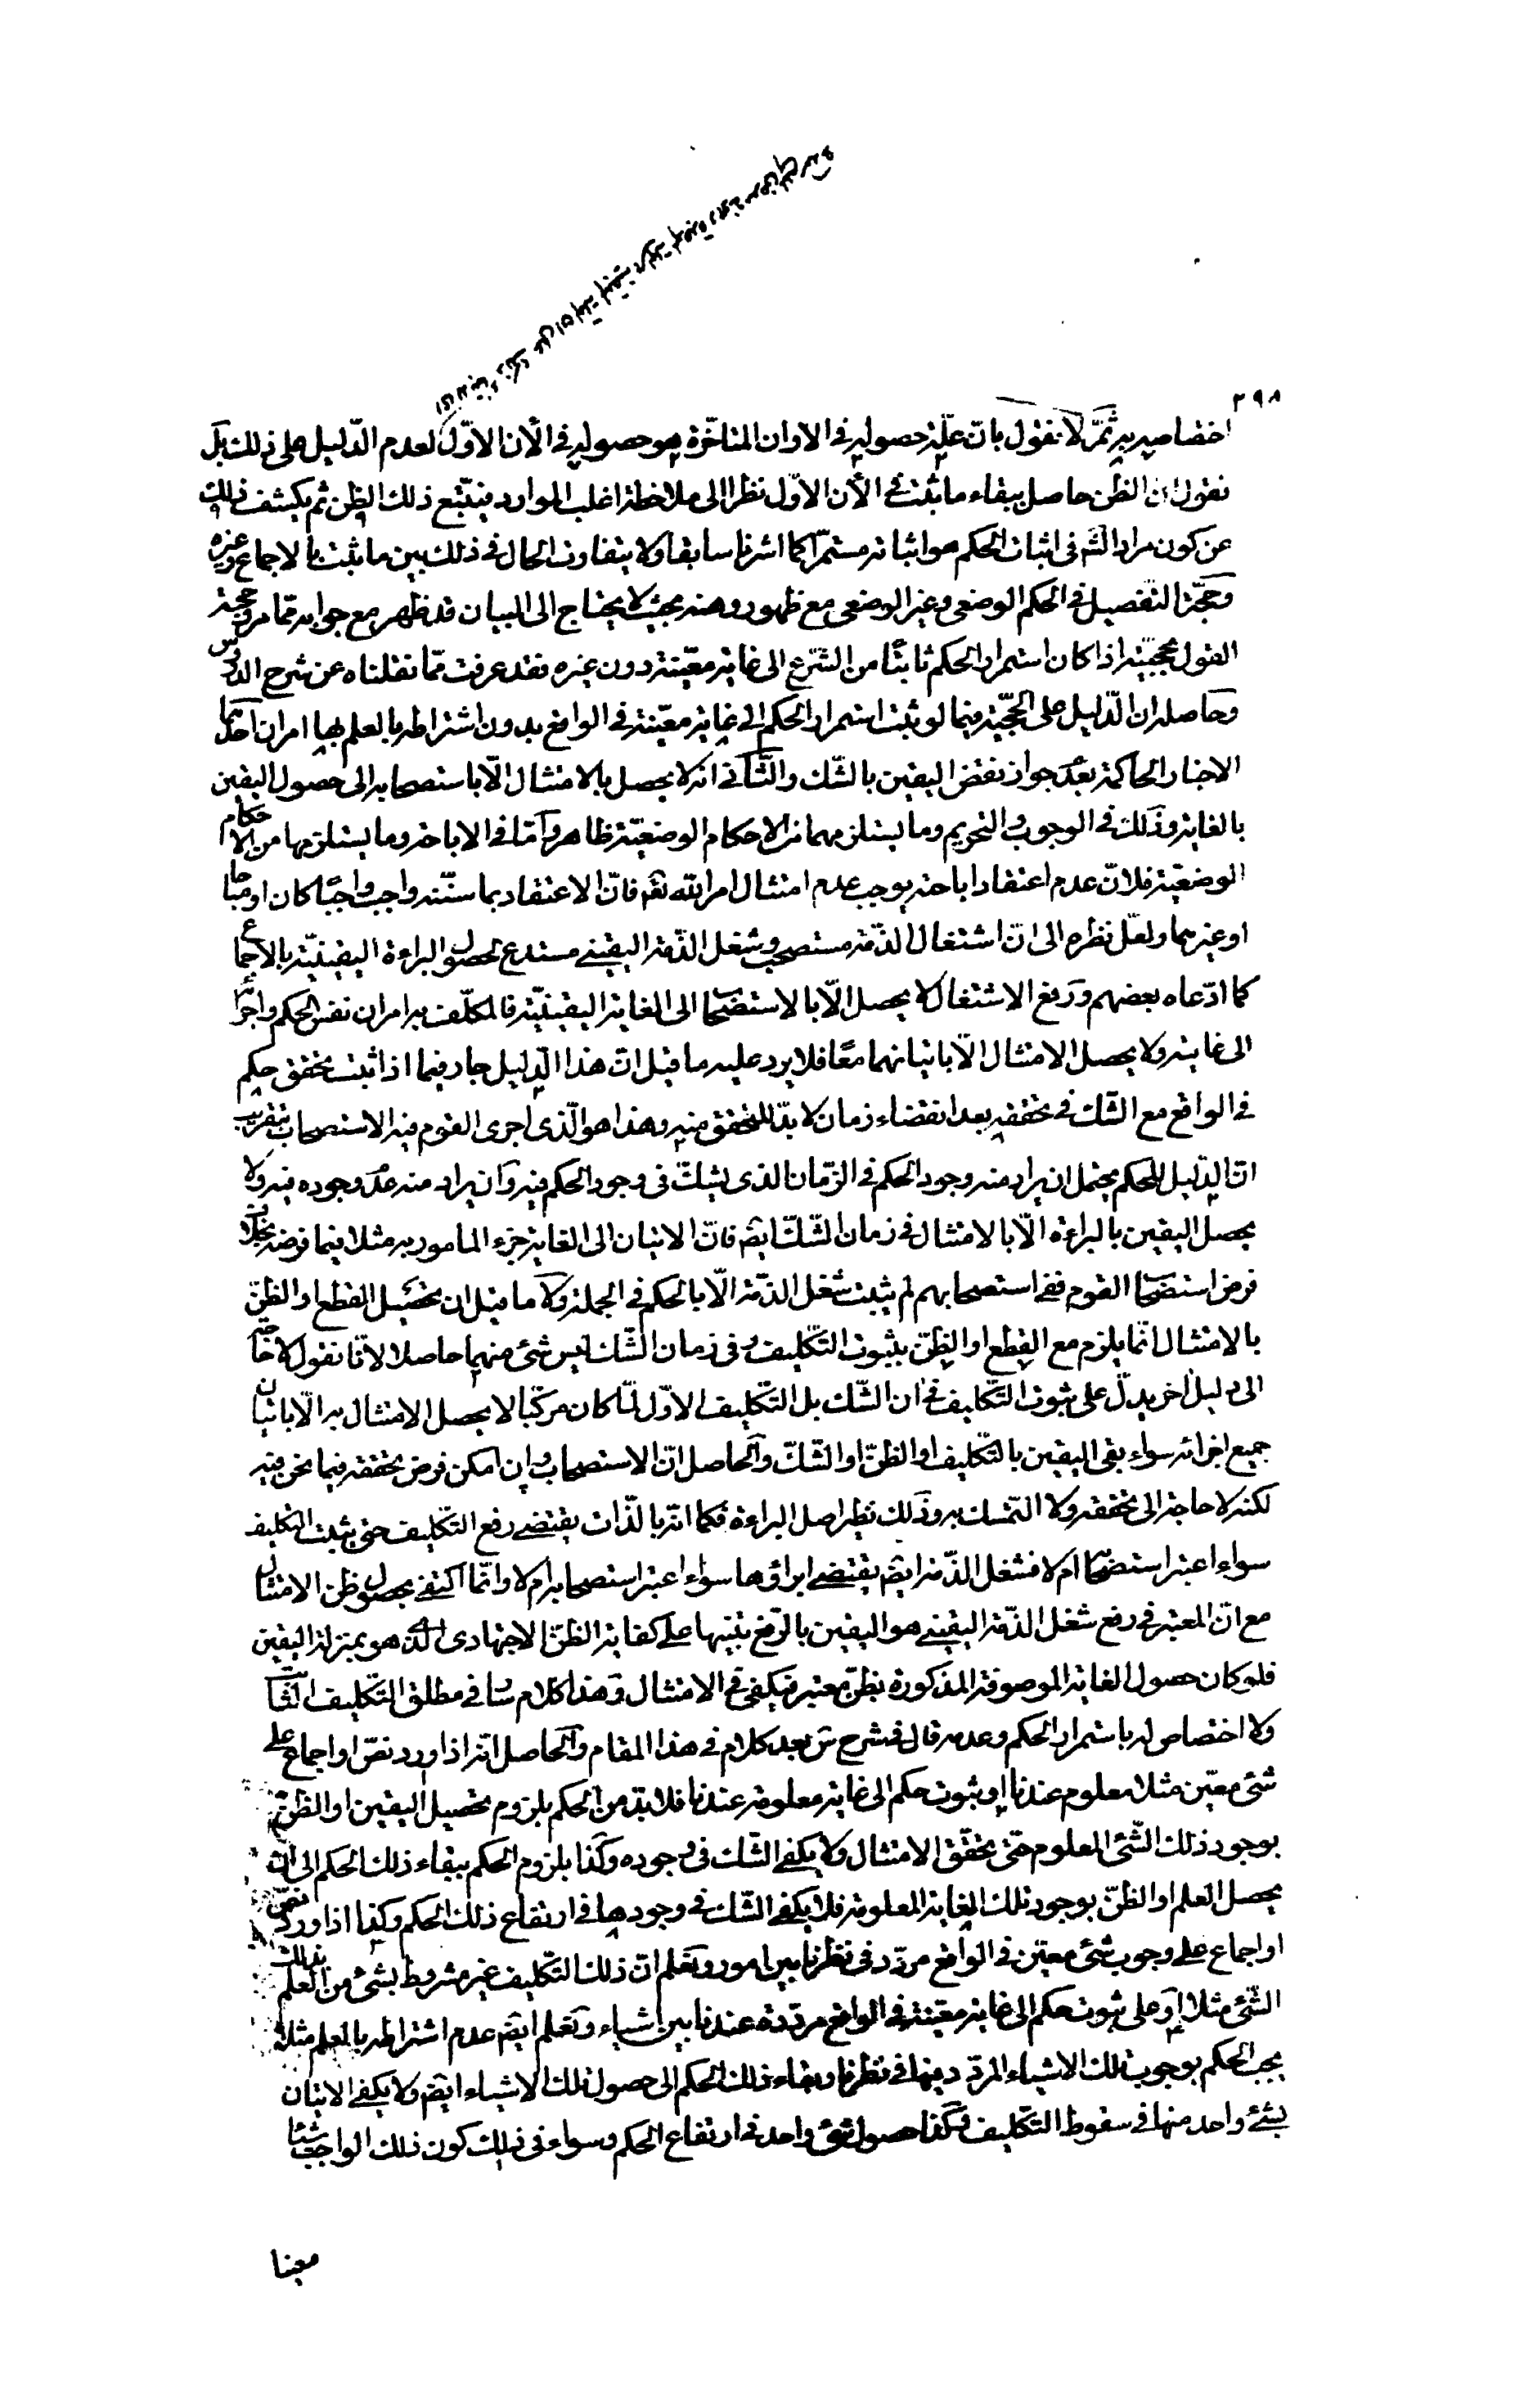 ٢٩٨
اختصاصه به ثمّ لا نقول بانّ علّية حصوله في الاوان المتأخّرة هو حصوله في الآن الاوّل لعدم الدّليل على ذلك بل
نقول انّ الظن حاصل ببقاء ما ثبت في الآن الاوّل نظرا الى ملاحظة اغلب الموارد فيتّبع ذلك الظن ثم يكشف ذلك
عن كون مراد الشّم في اثبات الحكم هو اثباته مستمرّا كما اشرنا سابقا ولا يتفاوت الحال في ذلك بين ما يثبت بالاجماع وغيره
وحجّة التفصيل في الحكم الوضعي وغير الوضعي مع ظهور وهنه بحيث لا يحتاج الى البيان قد ظهر مع جوابه ممّا مرّ وحجّة
القول بحجيّته اذا كان استمرار الحكم ثابتًا من الشّرع الى غاية معيّنة دون غيره فقد عرفت ممّا نقلناه عن شرح الدروس
وحاصله ان الدّليل على الحجّية فيما لو ثبت استمرار الحكم الى غاية معيّنة في الواقع بدون اشتراطه بالعلم بها امران احدهما
الاخبار الحاكمة بعدم جواز نقض اليقين بالشّك والثّاني انه لا يحصل بالامتثال الّا باستصحابه الى حصول اليقين
بالغاية وذلك في الوجوب والتحريم وما يستلزمهما من الاحكام الوضعيّة ظاهر وامّا في الاباحة وما يستلزمها من الاحكام
الوضعيّة فلانّ عدم اعتقاد اباحته يوجب عدم امتثال امر الله تعم فانّ الاعتقاد بما سنّنه واجب واجبًا كان او مباحا
او غيرهما ولعلّ نظره الى انّ اشتغال الذمّة مستصحب وشغل الذمّة اليقيني مستدع لحصول البراءة اليقينيّة بالاجماع
كما ادّعاه بعضهم ورفع الاشتغال لا يحصل الّا بالاستصحاب الى الغاية اليقينيّة فالمكلّف به امران نفس الحكم واجراؤه
الى غايته ولا يحصل الامتثال الّا باتيانهما معًا فلا يرد عليه ما قيل انّ هذا الدّليل جار فيما اذا ثبت تحقق حكم
في الواقع مع الشّك في تحققه بعد انقضاء زمان لا بدّ للتحقق منه وهذا هو الّذى اجرى القوم فيه الاستصحاب بتقريب
انّ الدّليل للحكم يحتمل ان يراد منه وجود الحكم في الزّمان الذى يشكّ في وجود الحكم فيه وان يراد منه عدم وجوده فيه ولا
يحصل اليقين بالبراءة الّا بالامتثال في زمان الشّكّ ايضم فانّ الاتيان الى الغاية جزء المامور به مثلا فيما فرضه بخلاف
فرض استصحاب القوم ففي استصحابهم لم يثبت شغل الذمّة الّا بالحكم في الجملة ولا ما قيل ان تحصيل القطع او الظنّ
بالامتثال انّما يلزم مع القطع او الظنّ بثبوت التّكليف وفي زمان الشّك ليس شئ منهما حاصلا لانّا نقول لا حاجة
الى دليل آخر يدلّ على ثبوت التّكليف في آن الشّك بل التّكليف الاوّل لمّا كان مركّبا لا يحصل الامتثال به الّا باتيان
جميع اجزائه سواء بقى اليقين بالتّكليف او الظنّ او الشّكّ والحاصل انّ الاستصحاب وان امكن فرض تحققه فيما نحن فيه
لكنه لا حاجة الى تحققه ولا التّمسّك به وذلك نظير اصل البراءة فكما انّه بالذّات يقتضي رفع التّكليف حتى يثبت التكليف
سواء اعتبر استصحابها ام لا فشغل الذّمّة ايضم يقتضي ابراؤها سواء اعتبر استصحابه ام لا وانّما اكتفى بحصول ظن الامتثال
مع انّ المعتبر في رفع شغل الذمّة اليقيني هو اليقين بالرّفع تنبيها على كفاية الظنّ الاجتهادى الّذي هو بمنزلة اليقين
فلو كان حصول الغاية الموصوفة المذكورة بظنّ معتبر فيكفي في الامتثال وهذا كلام سار في مطلق التّكليف الثّابت
ولا اختصاص له باستمرار الحكم وعدمه قال في شرح س بعد كلام في هذا المقام والحاصل انّه اذا ورد نصّ او اجماع على
شئ معيّن مثلا معلوم عندنا او ثبوت حكم الى غاية معلومة عندنا فلا بدّ من الحكم بلزوم تحصيل اليقين او الظنّ
بوجود ذلك الشّئ المعلوم حتّى يتحقّق الامتثال ولا يكفي الشّك في وجوده وكذا بلزوم الحكم ببقاء ذلك الحكم الى ان
يحصل العلم او الظنّ بوجود تلك الغاية المعلومة فلا يكفي الشّك في وجودها في ارتفاع ذلك الحكم وكذا اذا ورد نصّ
او اجماع على وجوب شئ معيّن في الواقع مردّد في نظرنا بين امور ونعلم انّ ذلك التّكليف غير مشروط بشئ من العلم بذلك
الشّئ مثلا او على ثبوت حكم الى غاية معيّنة في الواقع مردّدة عندنا بين اشياء ونعلم ايضم عدم اشتراطه بالعلم مثلا
يجب الحكم بوجوب تلك الاشياء المردّد فيها في نظرنا وبقاء ذلك الحكم الى حصول تلك الاشياء ايضم ولا يكفي الاتيان
بشئ واحد منها في سقوط التّكليف وكذا حصول شئ واحد في ارتفاع الحكم وسواء في ذلك كون ذلك الواجب شيئا
معينا